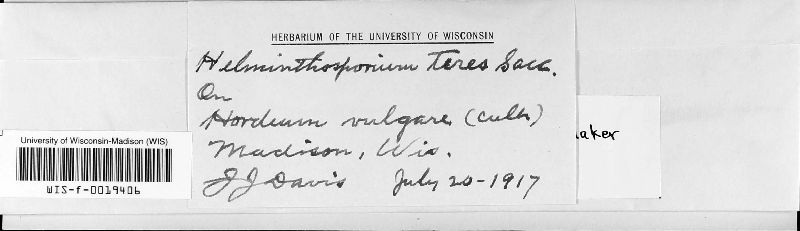 HERBARIUM OF THE UNIVERSITY OF WISCONSIN
Helminthosporium teres Sacc.
On
Hordeum vulgare (cult)
Madison, Wis.
J J Davis July 20-1917
University of Wisconsin-Madison (WIS)
WIS-f-0019406
aker